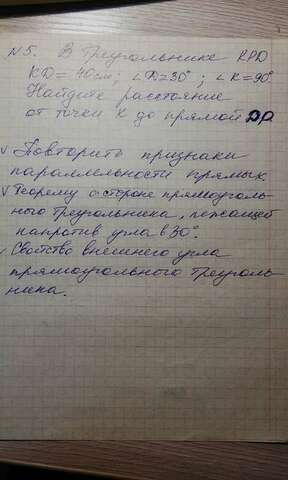 N 5. В треугольнике KPD
KD = 40см; ∠D=30°; ∠K=90°
Найдите расстояние
от точки K до прямой DP.
√ Повторить признаки
параллельности прямых
√ Теорему о стороне прямоуголь-
ного треугольника, лежащей
напротив угла в 30°.
√ Свойство внешнего угла
прямоугольного треуголь-
ника.